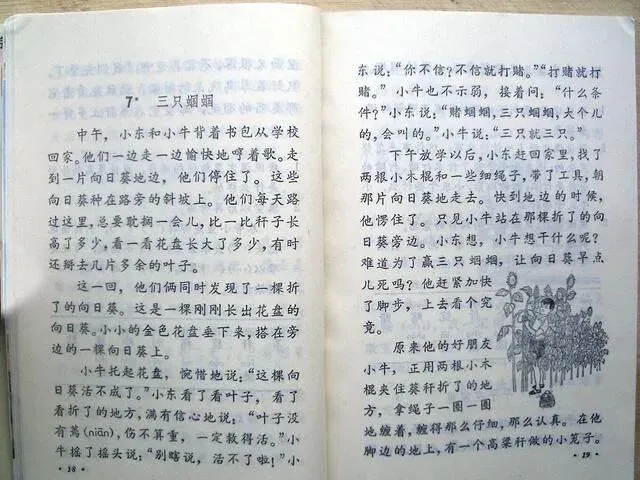 7* 三只蝈蝈
中午，小东和小牛背着书包从学校
回家。他们一边走一边愉快地哼着歌。走
到一片向日葵地边，他们停住了。这些
向日葵种在路旁的斜坡上。他们每天路
过这里，总要耽搁一会儿，比一比秆子长
高了多少，看一看花盘长大了多少，有时
还掰去几片多余的叶子。
这一回，他们俩同时发现了一棵折
了的向日葵。这是一棵刚刚长出花盘的
向日葵。小小的金色花盘垂下来，搭在旁
边的一棵向日葵上。
小牛托起花盘，惋惜地说：“这棵向
日葵活不成了。”小东看了看叶子，看了
看折了的地方，满有信心地说：“叶子没
有蔫(niān)，伤不算重，一定救得活。”小
牛摇了摇头说：“别瞎说，活不了啦！”小
·18·
东说：“你不信？不信就打赌。”“打赌就打
赌。”小牛也不示弱，接着问：“什么条
件？”小东说：“赌蝈蝈，三只蝈蝈，大个儿
的，会叫的。”小牛说：“三只就三只。”
下午放学以后，小东赶回家里，找了
两根小木棍和一些细绳子，带了工具，朝
那片向日葵地走去。快到地边的时候，
他愣住了。只见小牛站在那棵折了的向
日葵旁边。小东想，小牛想干什么呢？
难道为了赢三只蝈蝈，让向日葵早点
儿死吗？他赶紧加快
了脚步，上去看个究
竟。
原来他的好朋友
小牛，正用两根小木
棍夹住葵秆折了的地
方，拿绳子一圈一圈
地缠着，缠得那么仔细，那么认真。在他
脚边的地上，有一个高粱秆做的小笼子。
·19·